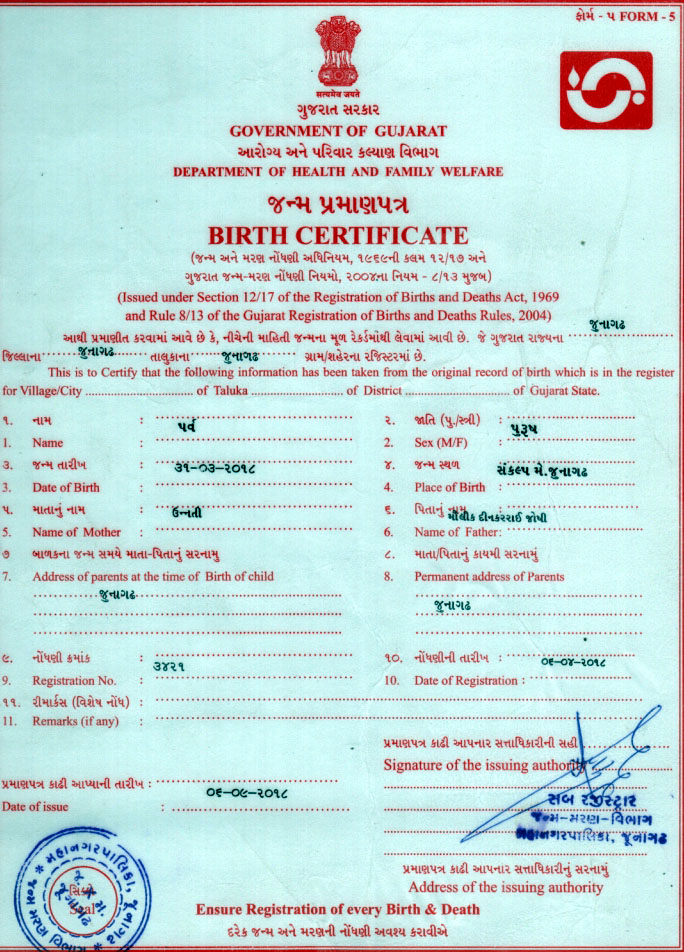 ફોર્મ - ૫ FORM - 5
सत्यमेव जयते
ગુજરાત સરકાર
GOVERNMENT OF GUJARAT
આરોગ્ય અને પરિવાર કલ્યાણ વિભાગ
DEPARTMENT OF HEALTH AND FAMILY WELFARE
જન્મ પ્રમાણપત્ર
BIRTH CERTIFICATE
(જન્મ અને મરણ નોંધણી અધિનિયમ, ૧૯૬૯ની કલમ ૧૨/૧૭ અને
ગુજરાત જન્મ-મરણ નોંધણી નિયમો, ૨૦૦૪ના નિયમ - ૮/૧૩ મુજબ)
(Issued under Section 12/17 of the Registration of Births and Deaths Act, 1969
and Rule 8/13 of the Gujarat Registration of Births and Deaths Rules, 2004)
આથી પ્રમાણીત કરવામાં આવે છે કે, નીચેની માહિતી જન્મના મૂળ રેકર્ડમાંથી લેવામાં આવી છે. જે ગુજરાત રાજ્યના જુનાગઢ
જિલ્લાના જુનાગઢ તાલુકાના જુનાગઢ ગ્રામ/શહેરના રજિસ્ટરમાં છે.
This is to Certify that the following information has been taken from the original record of birth which is in the register
for Village/City of Taluka of District of Gujarat State.
૧. નામ : પર્વ ૨. જાતિ (પુ./સ્ત્રી) : પુરૂષ
1. Name : 2. Sex (M/F) :
૩. જન્મ તારીખ : ૩૧-૦૩-૨૦૧૮ ૪. જન્મ સ્થળ : સંકલ્પ મે.જુનાગઢ
3. Date of Birth : 4. Place of Birth :
૫. માતાનું નામ : ઉન્નતી ૬. પિતાનું નામ : મૌલીક દીનકરરાઈ જોષી
5. Name of Mother : 6. Name of Father:
૭ બાળકના જન્મ સમયે માતા-પિતાનું સરનામુ ૮. માતા/પિતાનું કાયમી સરનામું
7. Address of parents at the time of Birth of child 8. Permanent address of Parents
જુનાગઢ જુનાગઢ
૯. નોંધણી ક્રમાંક : ૩૪૨૧ ૧૦. નોંધણીની તારીખ : ૦૬-૦૪-૨૦૧૮
9. Registration No. : 10. Date of Registration :
૧૧. રીમાર્કસ (વિશેષ નોંધ) :
11. Remarks (if any) :
પ્રમાણપત્ર કાઢી આપનાર સત્તાધિકારીની સહી
Signature of the issuing authority
પ્રમાણપત્ર કાઢી આપ્યાની તારીખ : ૦૬-૦૯-૨૦૧૮
Date of issue :
સબ રજીસ્ટ્રાર
જન્મ-મરણ-વિભાગ
મહાનગરપાલિકા, જૂનાગઢ
મહાનગરપાલિકા, જૂનાગઢ
સિક્કો
Seal
પ્રમાણપત્ર કાઢી આપનાર સત્તાધિકારીનું સરનામું
Address of the issuing authority
Ensure Registration of every Birth & Death
દરેક જન્મ અને મરણની નોંધણી અવશ્ય કરાવીએ